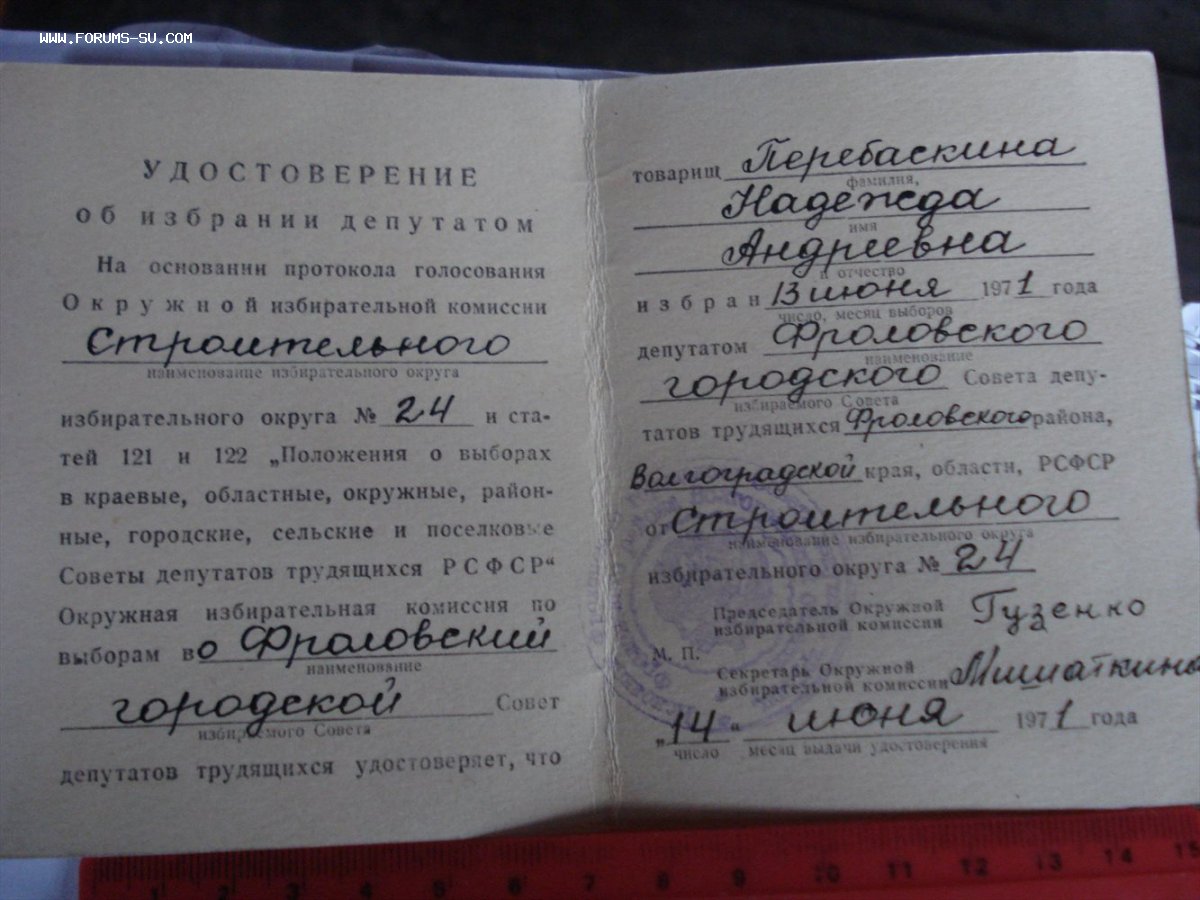 WWW.FORUMS-SU.COM
УДОСТОВЕРЕНИЕ
об избрании депутатом
На основании протокола голосования
Окружной избирательной комиссии
Строительного
наименование избирательного округа
избирательного округа № 24 и ста-
тей 121 и 122 „Положения о выборах
в краевые, областные, окружные, район-
ные, городские, сельские и поселковые
Советы депутатов трудящихся РСФСР“
Окружная избирательная комиссия по
выборам во Фроловский
наименование
городской Совет
избираемого Совета
депутатов трудящихся удостоверяет, что
товарищ Перебаскина
фамилия,
Надежда
имя
Андреевна
и отчество
избран 13 июня 1971 года
число, месяц выборов
депутатом Фроловского
наименование
городского Совета депу-
избираемого Совета
татов трудящихся Фроловского района,
Волгоградской края, области, РСФСР
от Строительного
наименование избирательного округа
избирательного округа № 24
Председатель Окружной
избирательной комиссии Гузенко
М. П.
Секретарь Окружной
избирательной комиссии Мишаткина
„14“ июня 1971 года
число месяц выдачи удостоверения
1 2 3 4 5 6 7 8 9 10 11 12 13 14 15